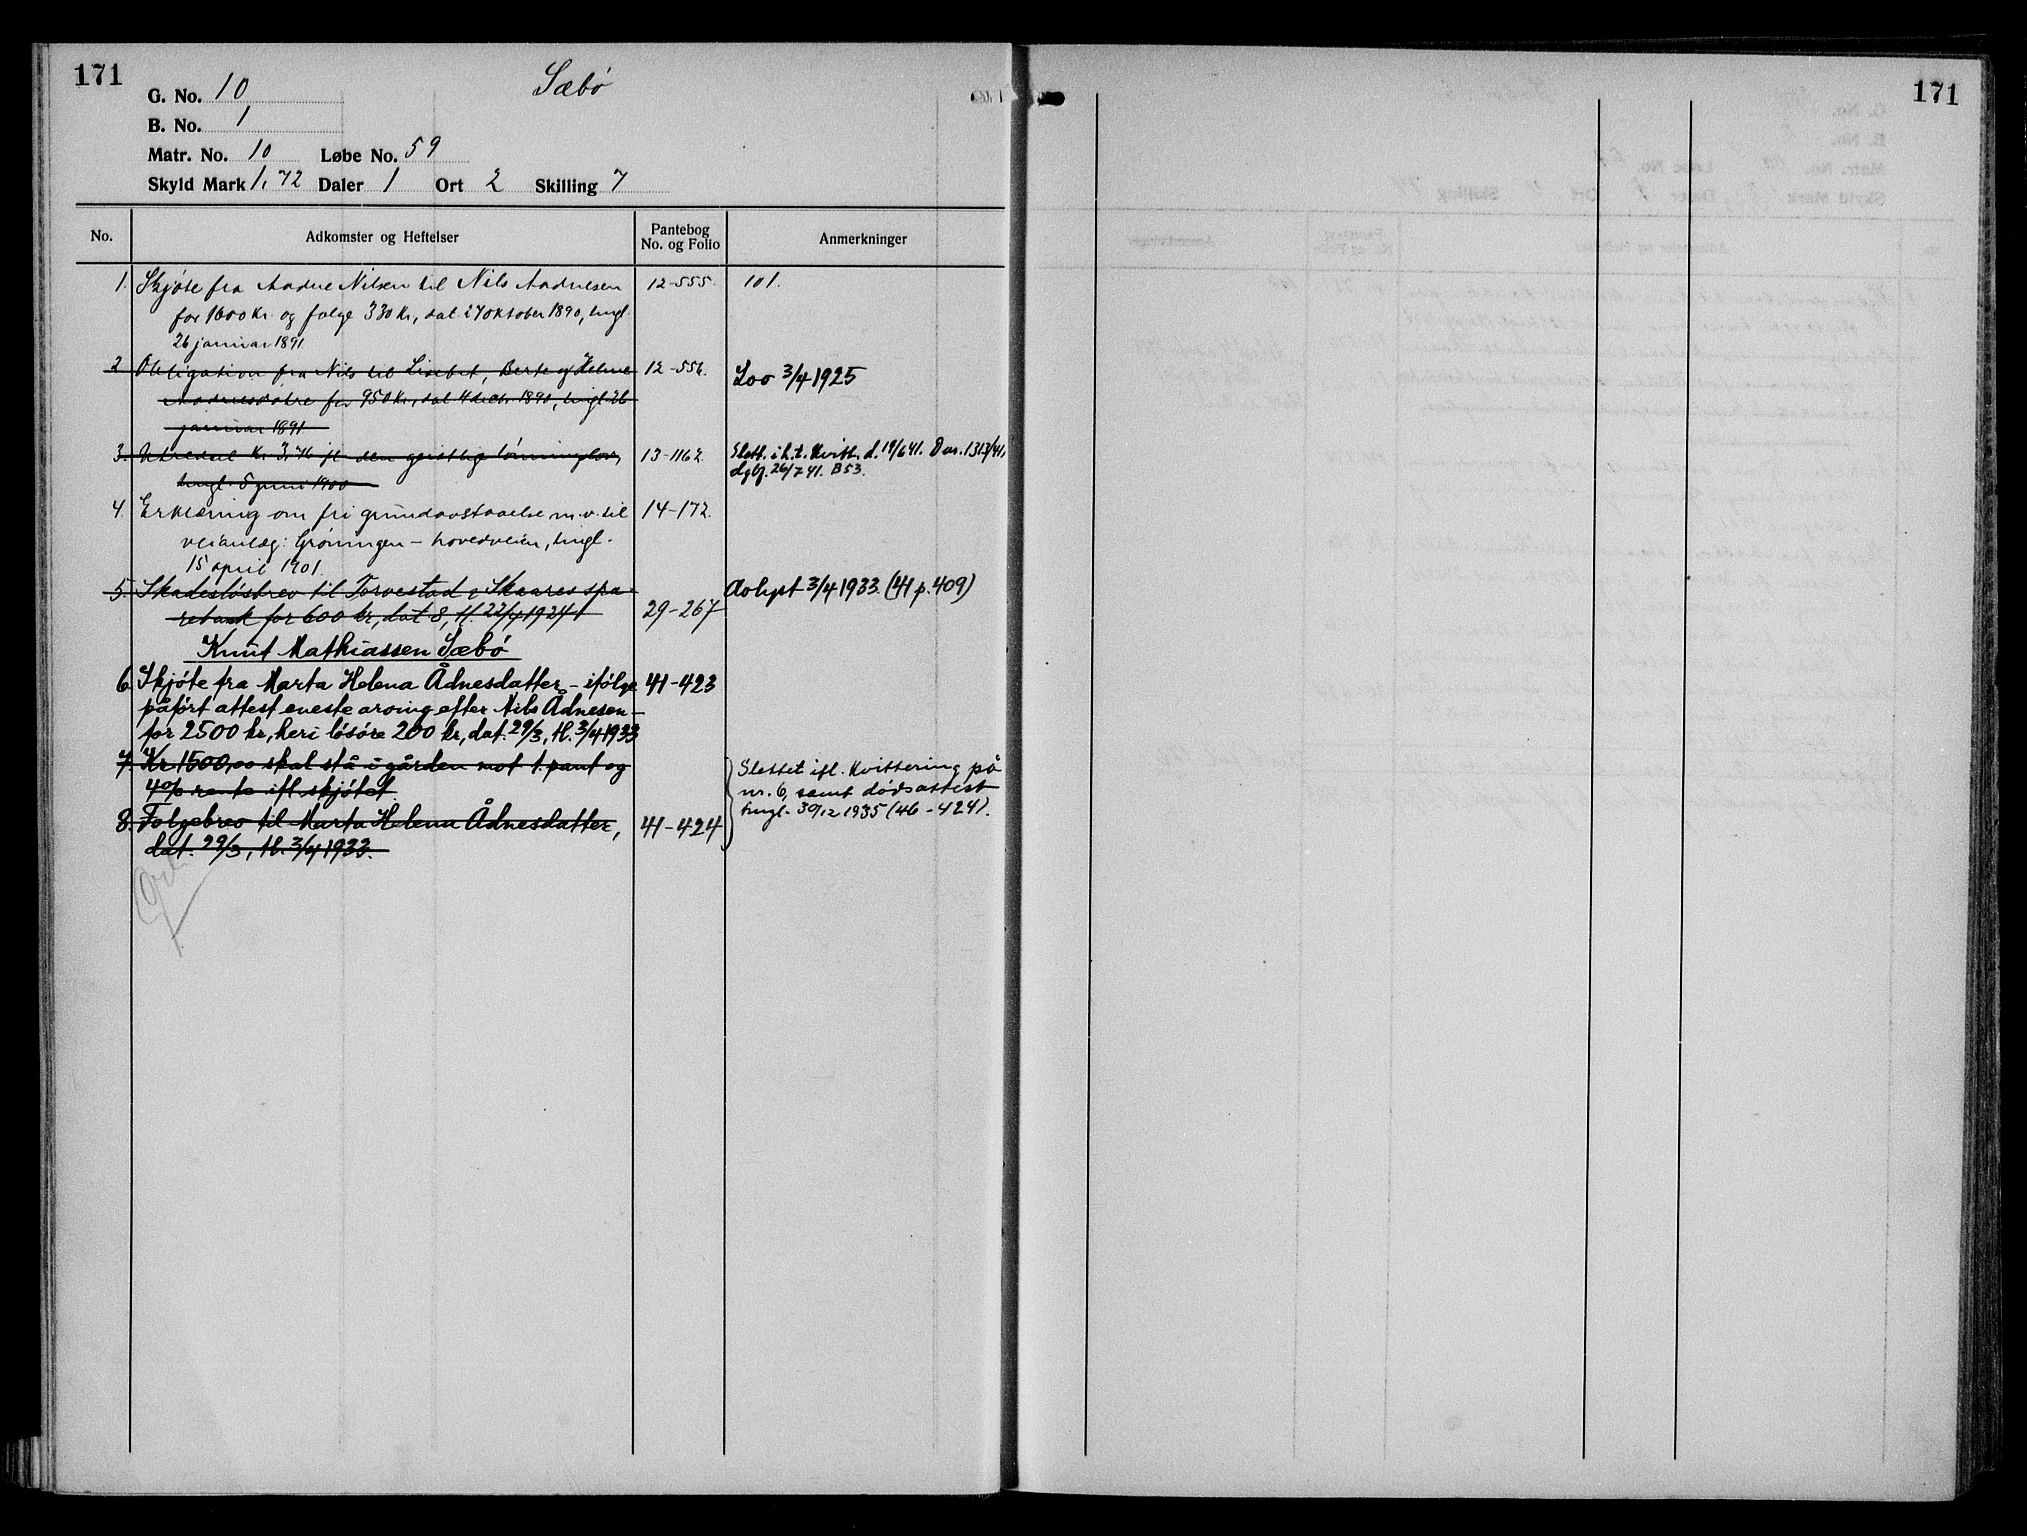 171
G. No. 10
Sæbø
B. No. 1
Matr. No. 10 Løbe No. 59
Skyld Mark 1,72 Daler 1 Ort 2 Skilling 7
No. Adkomster og Heftelser Pantebog No. og Folio Anmerkninger
1. Skjøte fra Aadne Nilsen til Nils Aadnesen 12-555. 101.
for 1600 Kr. og følge 330 Kr., dat. 27 oktober 1890, tingl.
26 januar 1891
2 Obligation fra Nils til Lisebet, Berte og Helene 12-556. Loo 3/4 1925
Aadnesdøtre for 950 Kr., dat 4 decbr 1890, tingl. 26
januar 1891
3. Utredsel Kr. 3,76 jf den geistlig lønningslov, 13-1162. Slett. i h. t. kvitt. d. 19/6 41. Dnr. 1313/41,
tingl. 5 juni 1900 dgbf. 26/7 41. B53.
4. Erklæring om fri grundavstaaelse m.v. til 14-172.
veianlæg: Grøningen – hovedveien, tingl.
15 april 1901.
5. Skadesløsbrev til Torvestad & Skaares spa- Avlyst 3/4 1933. (41 p. 409)
rebank for 600 kr, dat 8, tl. 22/4 1924 29-267
Knut Mathiassen Sæbö
6. Skjøte fra Marta Helena Ådnesdatter – ifølge 41-423
påført attest eneste arving efter Nils Ådnesen –
for 2500 kr, heri løsøre 200 kr, dat. 29/3, tl. 3/4 1933
7. Kr 1500,00 skal stå i gården mot 1. pant og Slettet ifl. kvittering på
4% rente ifl skjøtet nr. 6, samt dødsattest
8. Følgebrev til Marta Helena Ådnesdatter, 41-424 tingl. 30/12 1935 (46-424).
dat. 29/3, tl. 3/4 1933.
171